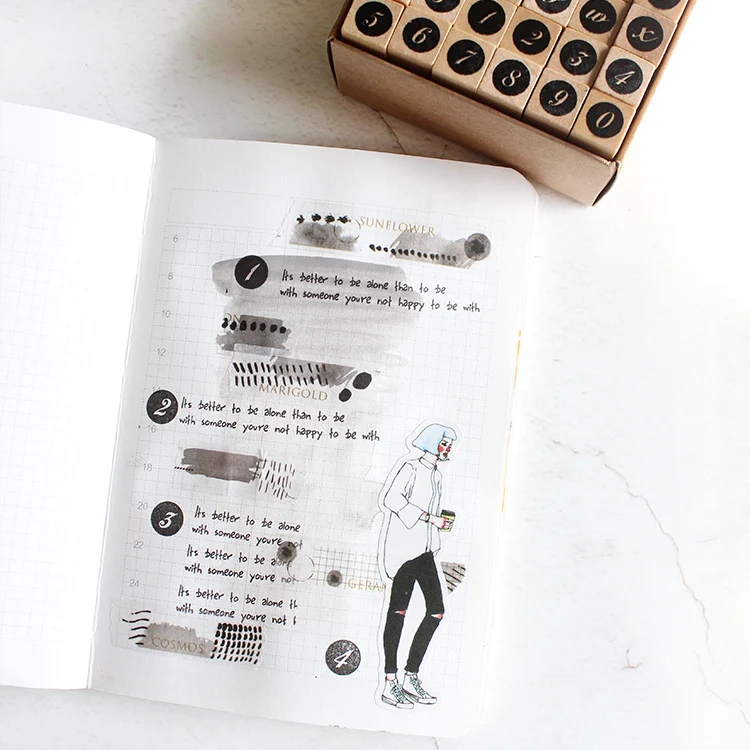 5 6 1 w x
6 7 2 3 4
8 9 0
SUNFLOWER
6
8
1
Its better to be alone than to be
with someone youre not happy to be with
10
12
MARIGOLD
2
Its better to be alone than to be
with someone youre not happy to be with
16
18
3
Its better to be alone
with someone youre not
20
Its better to be
with someone youre not
22
GERA
24
Its better to be alone th
with someone youre not
COSMOS
4